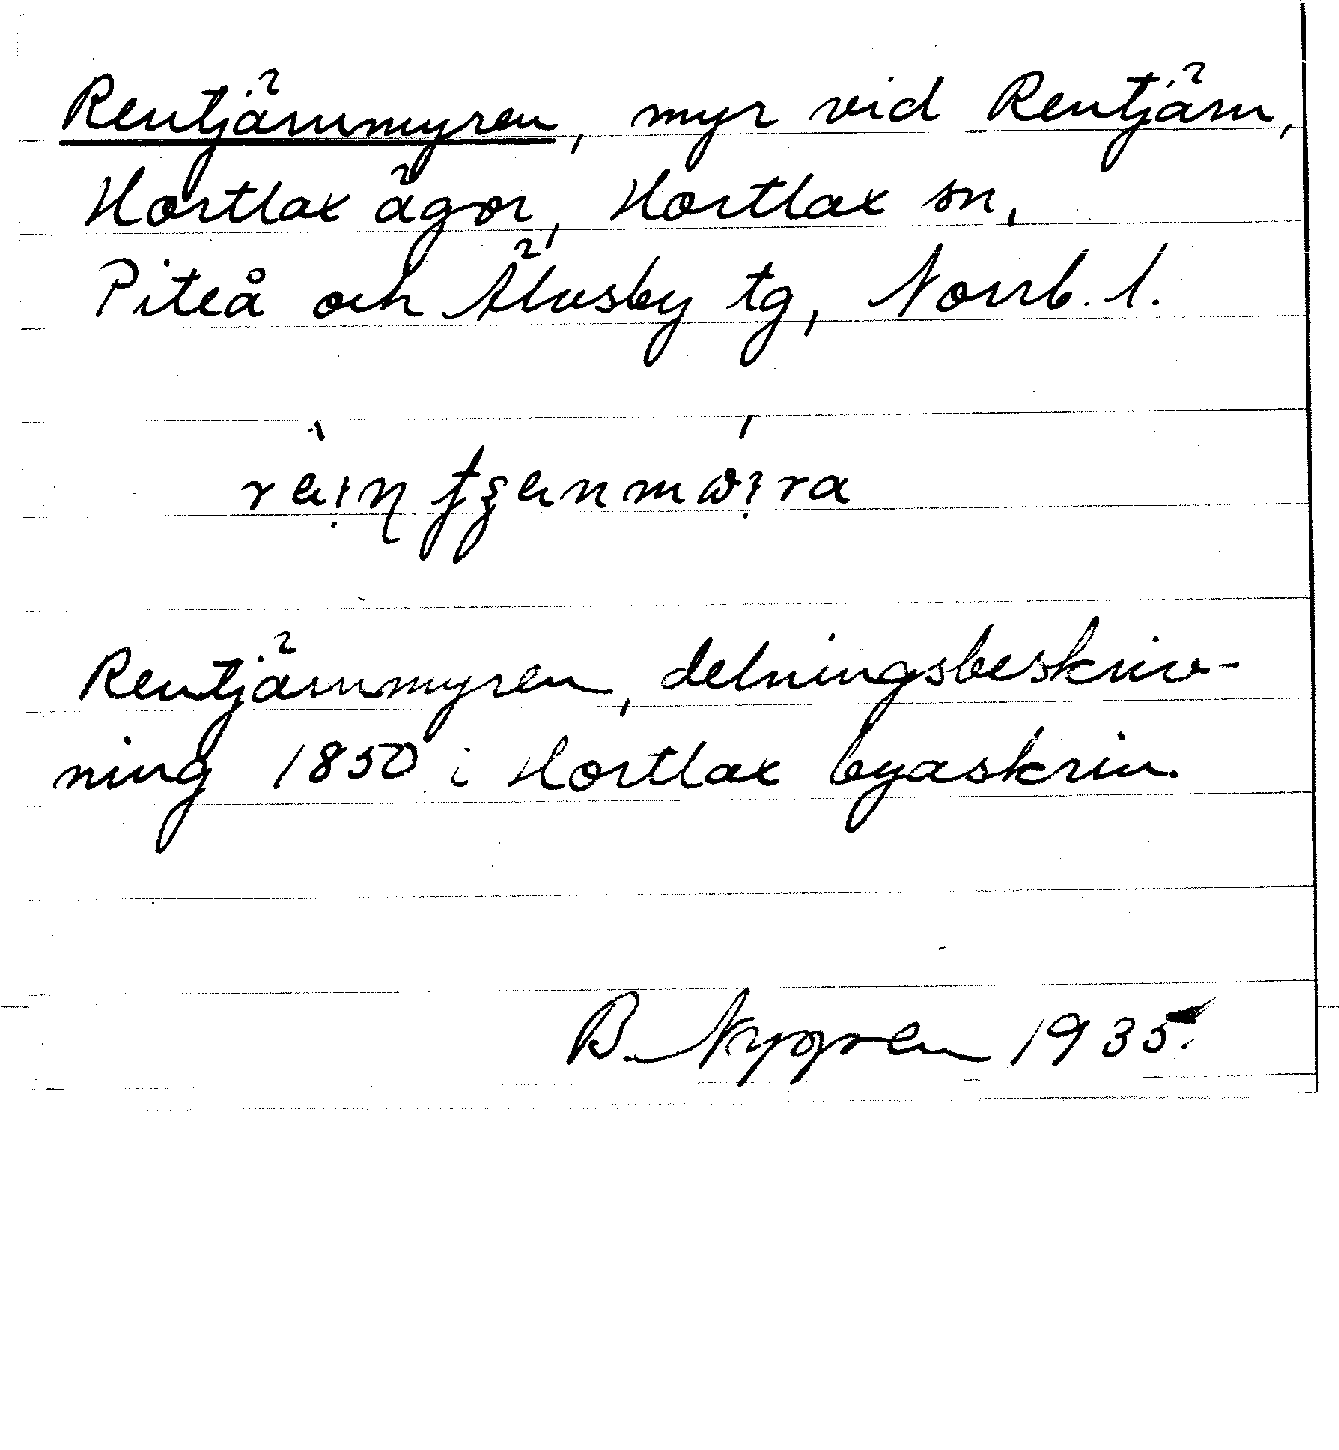 Rentjärnmyren, myr vid Rentjärn,
Hortlax ägor, Hortlax sn,
Piteå och Älvsby tg, Norrb. l.
Rentjärnmyren, delningsbeskriv-
ning 1850 i Hortlax byaskrin.
B. Nygren 1935.